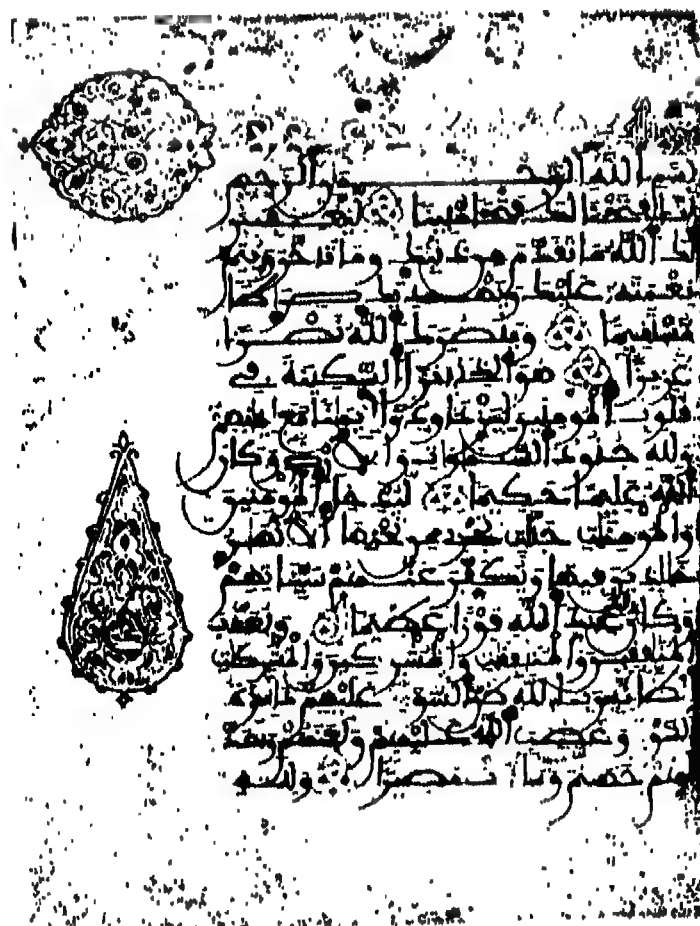 بسم الله الرحمن الرحيم
انا فتحنا لك فتحا مبينا ليغفر
لك الله ما تقدم من ذنبك وما تاخر ويتم
نعمته عليك ويهديك صراطا
مستقيما وينصرك الله نصرا
عزيزا هو الذي انزل السكينة في
قلوب المومنين ليزدادوا ايمنا مع ايمنهم
ولله جنود السموات والارض وكان
الله عليما حكيما ليدخل المومنين
والمومنت جنت تجري من تحتها الانهر
خلدين فيها ويكفر عنهم سياتهم
وكان ذلك عند الله فوزا عظيما ويعذب
المنفقين والمنفقت والمشركين والمشركت
الظانين بالله ظن السوء عليهم دائرة
السوء وغضب الله عليهم ولعنهم واعد
لهم جهنم وساءت مصيرا ولله